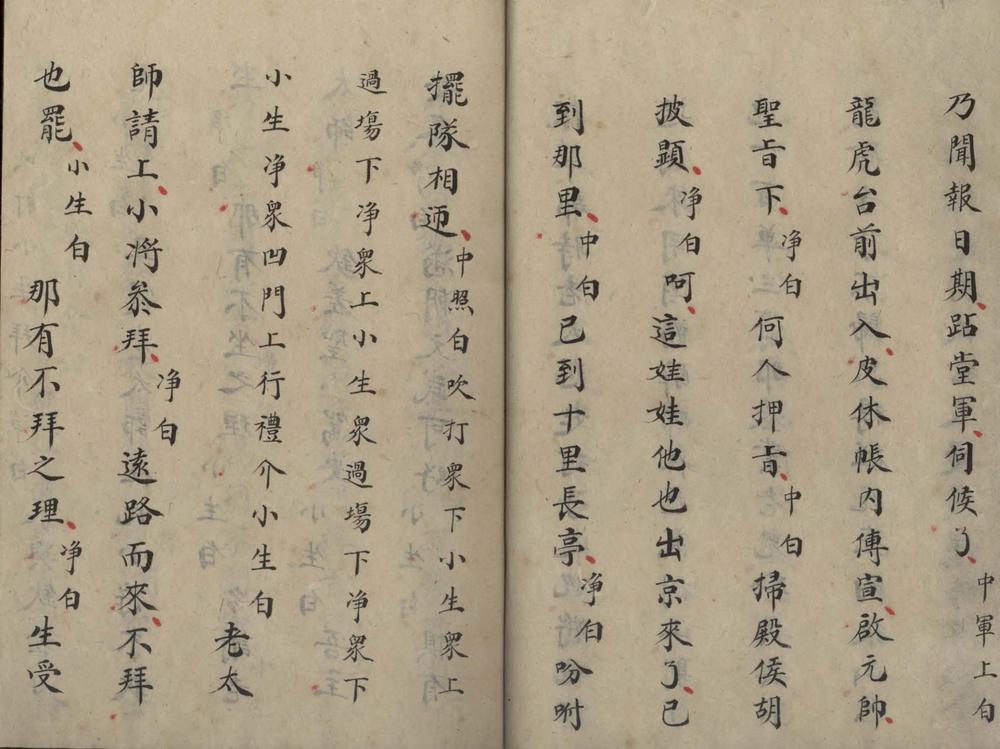 乃聞報日期跕堂軍伺候了中軍上白
龍虎台前出入皮休帳內傳宣啟元帥
聖旨下净白何人押旨中白掃殿侯胡
披顕净白呵這娃娃他也出京來了已
到那里中白已到十里長亭净白吩咐
擺隊相迊中照白吹打衆下小生衆上
過塲下净衆上小生衆過塲下净衆下
小生净衆凹門上行禮介小生白老太
師請上小将叅拜净白遠路而來不拜
也罷小生白那有不拜之理净白生受